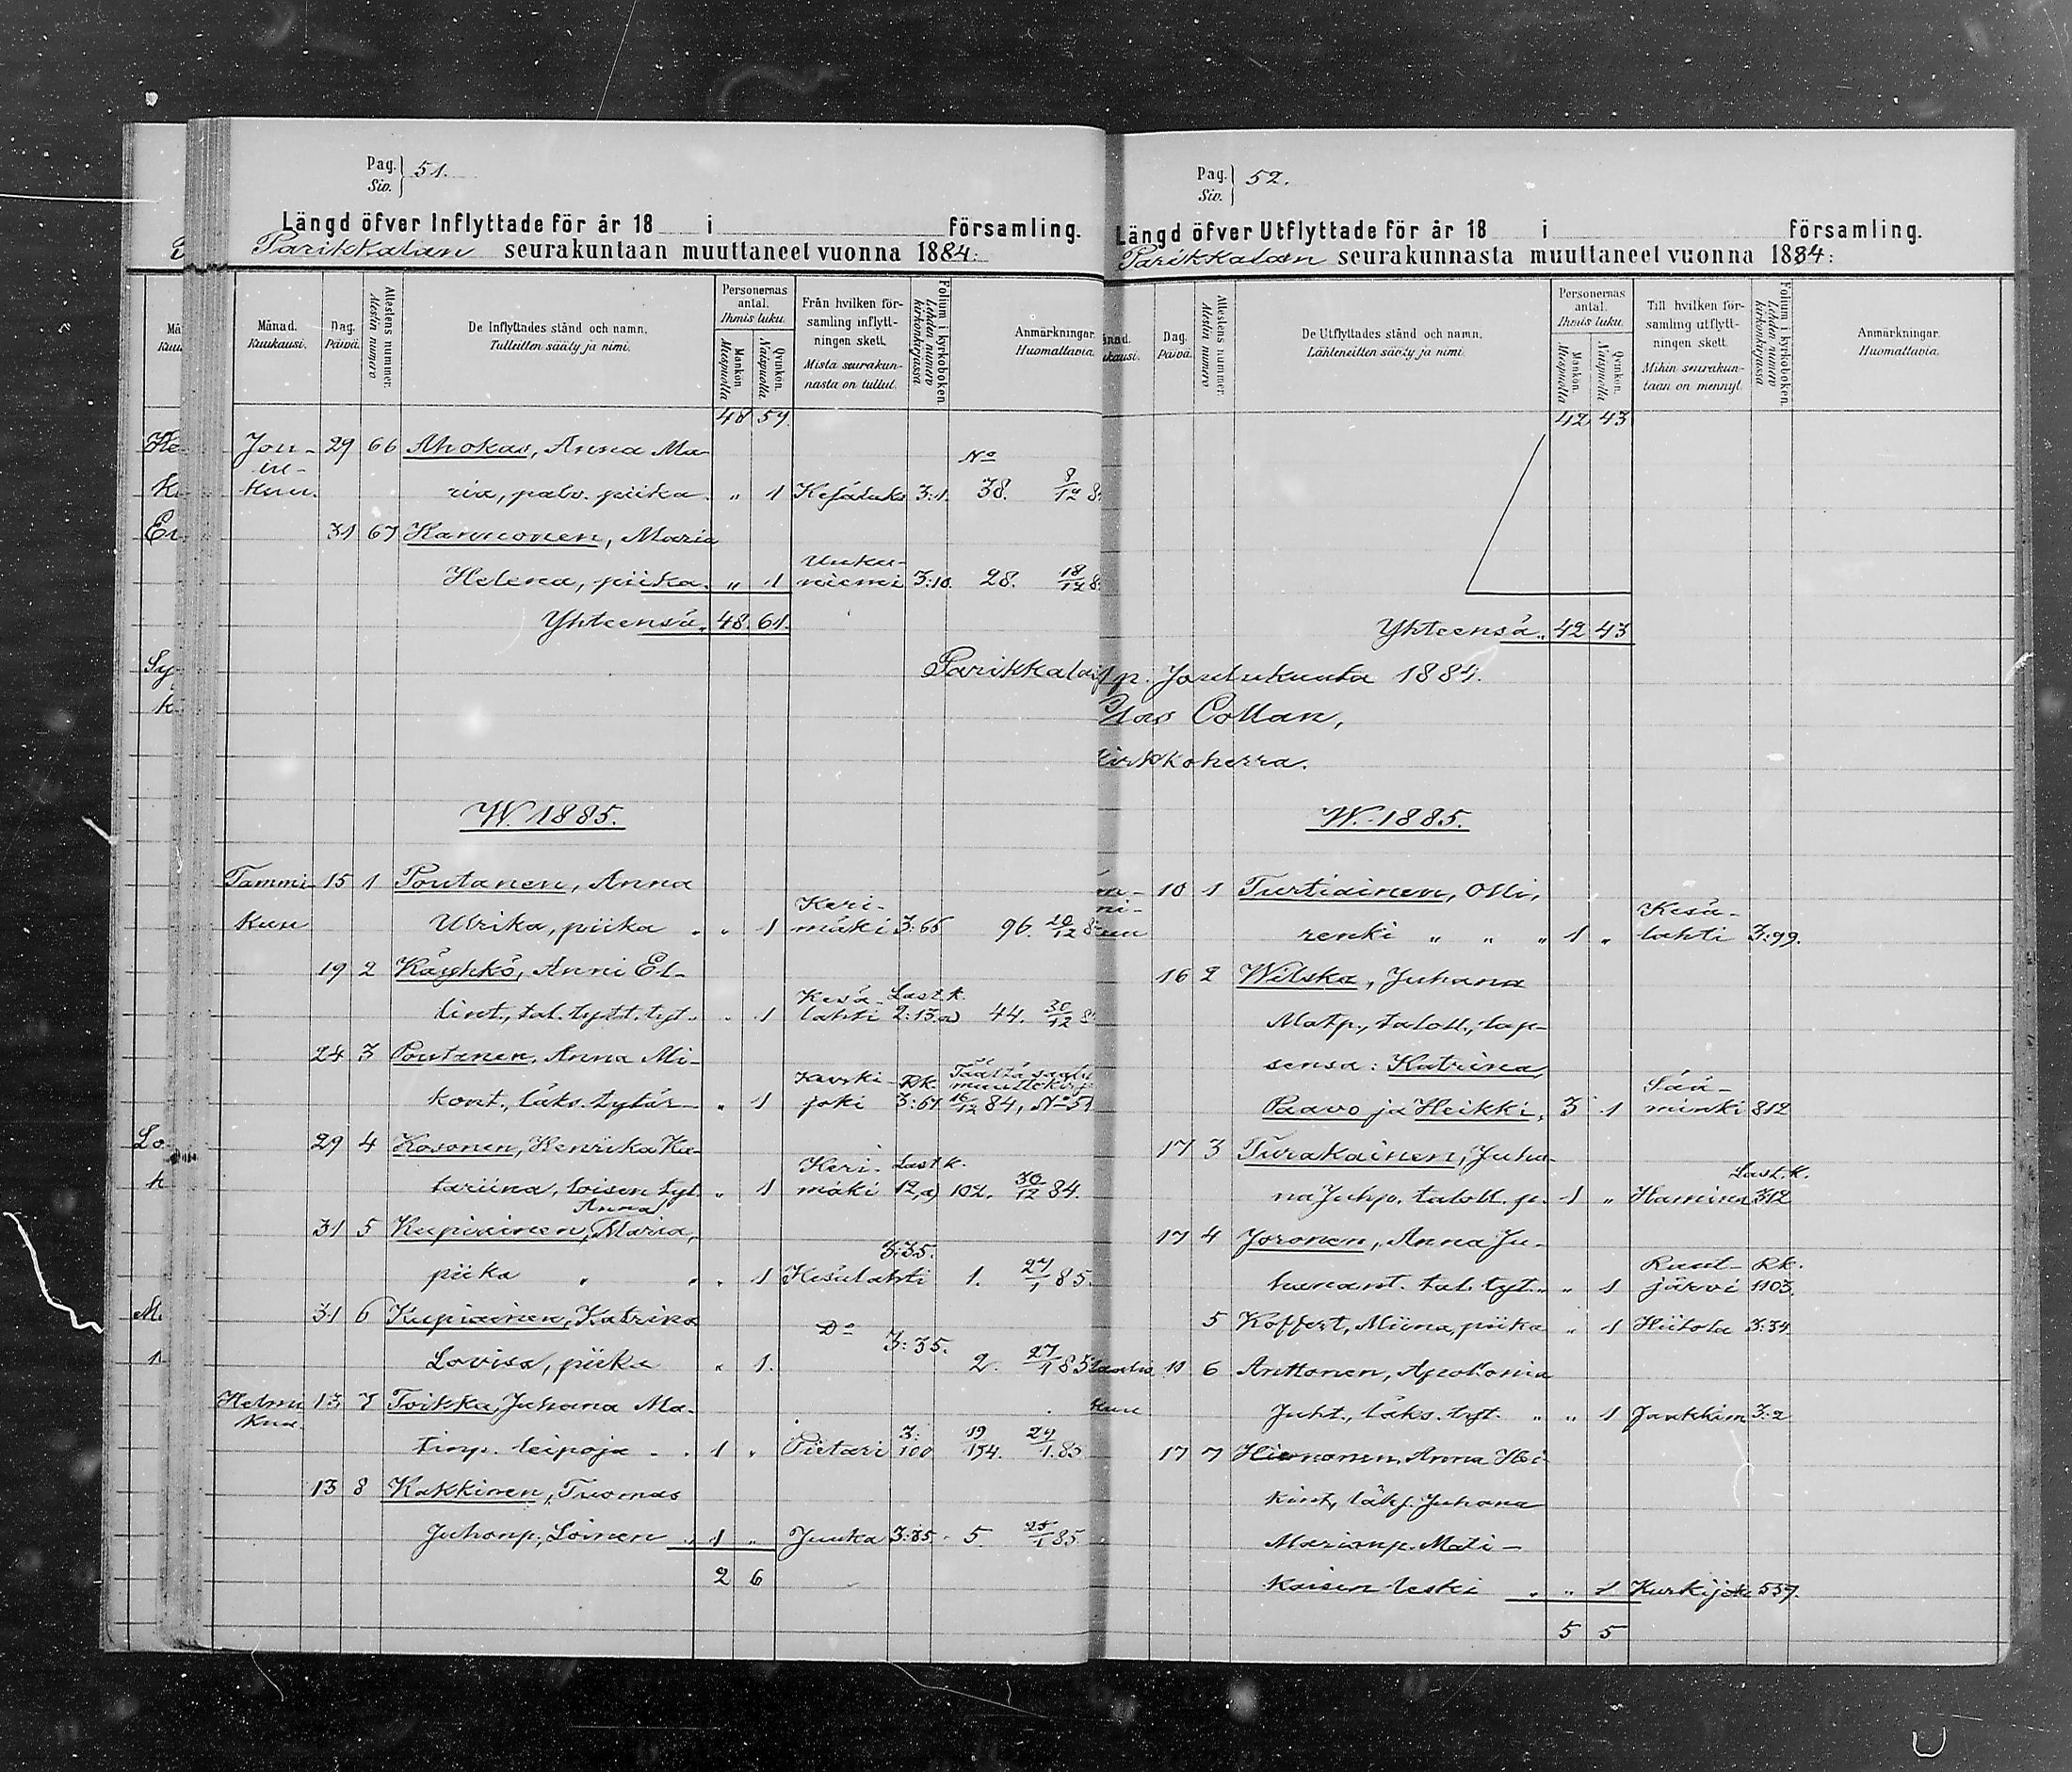 Pag. Siv. 51.
Längd öfver Inflyttade för år 18 i församling.
Parikkalan seurakuntaan muuttaneet vuonna 1884:
Månad. Kuukausi.
Dag. Päivä.
Attestens nummer. Alestin numero
De Inflyttades stånd och namn. Tulleitten sääty ja nimi.
Personernas antal. Ihmis luku.
Mankön Miespuolia
Qvinkön. Naispuolia
Från hvilken församling inflyttningen skett. Mista seurakunnasta on tullut.
Folium i kyrkoboken. Lehden numero kirkonkirjassa
Anmärkningar. Huomattavia.
48 59
Jou- 29 66 Ahokas, Anna Ma- No
lu-
kuu. ria, palv. piika. „ 1 Kesälaks 3:1. 38. 8/12 8
31 67 Karvuonen, Maria
Uuku-
Helena, piika. „ 1 niemi 3:10. 28. 18/12 8
Yhteensä. 48. 61.
W. 1885.
Tammi- 15 1 Poutanen, Anna
Keri-
kuu Ulrika, piika „ 1 mäki 3:66 96. 20/12 8
19 2 Käyhkö, Anni El-
Kesä- Last.k.
lint., tal. tytt. tyt. „ 1 lahti 2:13.a) 44. 30/12 8
24 3 Poutanen, Anna Mi-
Rk. Täältä
joki 3:61 16/12 84, No 51
kont., läks. tytär „ 1
29 4 Kosonen, Henrika Ka-
Keri- Last k.
tariina, loisen tyt. „ 1 mäki 12,a) 102. 30/12 84.
Anna
31 5 Kupiainen, Maria,
3:35.
piika „ „ 1 Kesälahti 1. 27/1 85.
31 6 Kupiainen, Katrina
Do 3:35.
Lovisa, piika „ 1. 2. 27/1 85
Helmi 13 7 Toikka, Juhana Ma-
kuu
tinp. leipoja 1 „ Pietari 3:100 19 154. 29/1. 85.
13 8 Kakkinen, Tuomas
Juhonp., Loinen 1 „ Juuka 3:85. 5. 25/1 85.
2 6
Pag. Siv. 52.
Längd öfver Utflyttade för år 18 i församling.
Parikkalan seurakunnasta muuttaneet vuonna 1884:
Dag. Päivä.
Attestens nummer. Alestin numero
De Utflyttades stånd och namn. Lähteneitten sääty ja nimi.
Personernas antal. Ihmis luku.
Mankön. Miespuolia
Qvinkön. Naispuolia
Till hvilken församling utflyttningen skett. Mihin seurakuntaan on mennyt.
Folium i kyrkoboken. Lehden numero kirkonkirjassa
Anmärkningar. Huomattavia.
42 43
Yhteensä. 42 43
Parikkala p. Joulukuuta 1884.
Collan,
kirkkoherra.
W. 1885.
10 1 Turtiainen, Olli,
Kesä-
renki „ „ „ 1 „ lahti 3:99.
16 2 Wilska, Juhana
Matp., taloll., lap-
sensa: Katrina,
Sää-
Paavo ja Heikki, 3 1 minki 812
17 3 Turakainen, Juha-
Last.k.
na Juhp. taloll. p. 1 „ Hamina 312
17 4 Joronen, Anna Ju-
Ruut- Rk.
hanant. tal. tyt. „ 1 järvi 1103.
5 Koffert, Miina, piika „ 1 Hiitola 3:34
11 6 Anttonen, Apolonia
Juht., läks. tyt. „ „ 1 Jaakkim 3:2
17 7 Hiironen, Anna Hei-
kint, läks. Juhana
Mati-
kaisen leski „ „ 1 Kurkijok 557.
5 5